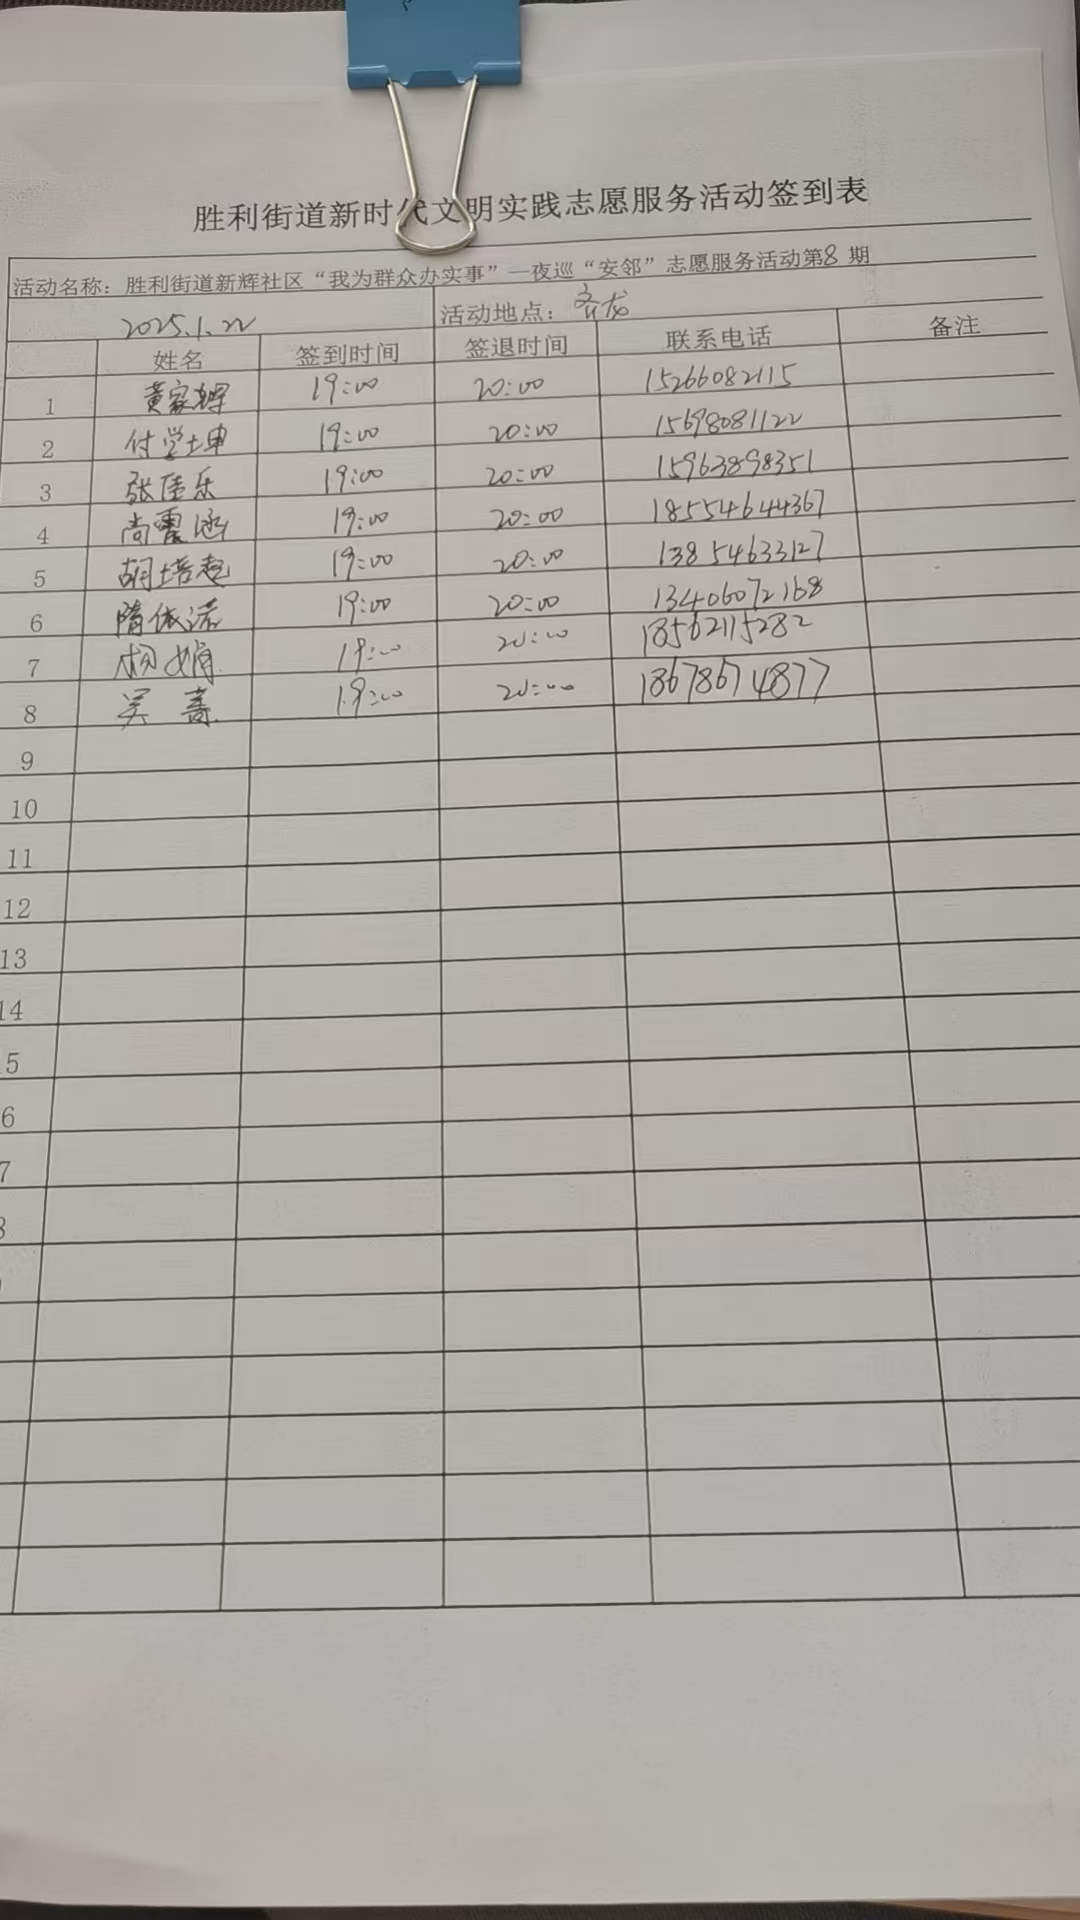 胜利街道新时代文明实践志愿服务活动签到表
活动名称：胜利街道新辉社区“我为群众办实事”—夜巡“安邻”志愿服务活动第8期
2025.1.22 活动地点：齐龙
姓名 签到时间 签退时间 联系电话 备注
1 黄家辉 19:00 20:00 15266082115
2 付学坤 19:00 20:00 15698081122
3 张佳乐 19:00 20:00 15963898351
4 尚震涵 19:00 20:00 18554644367
5 胡培超 19:00 20:00 13854633127
6 隋依诺 19:00 20:00 13406072168
7 杨娟 19:00 20:00 18562115282
8 吴喜 19:00 20:00 18678674877
9
10
11
12
13
14
5
6
7
8